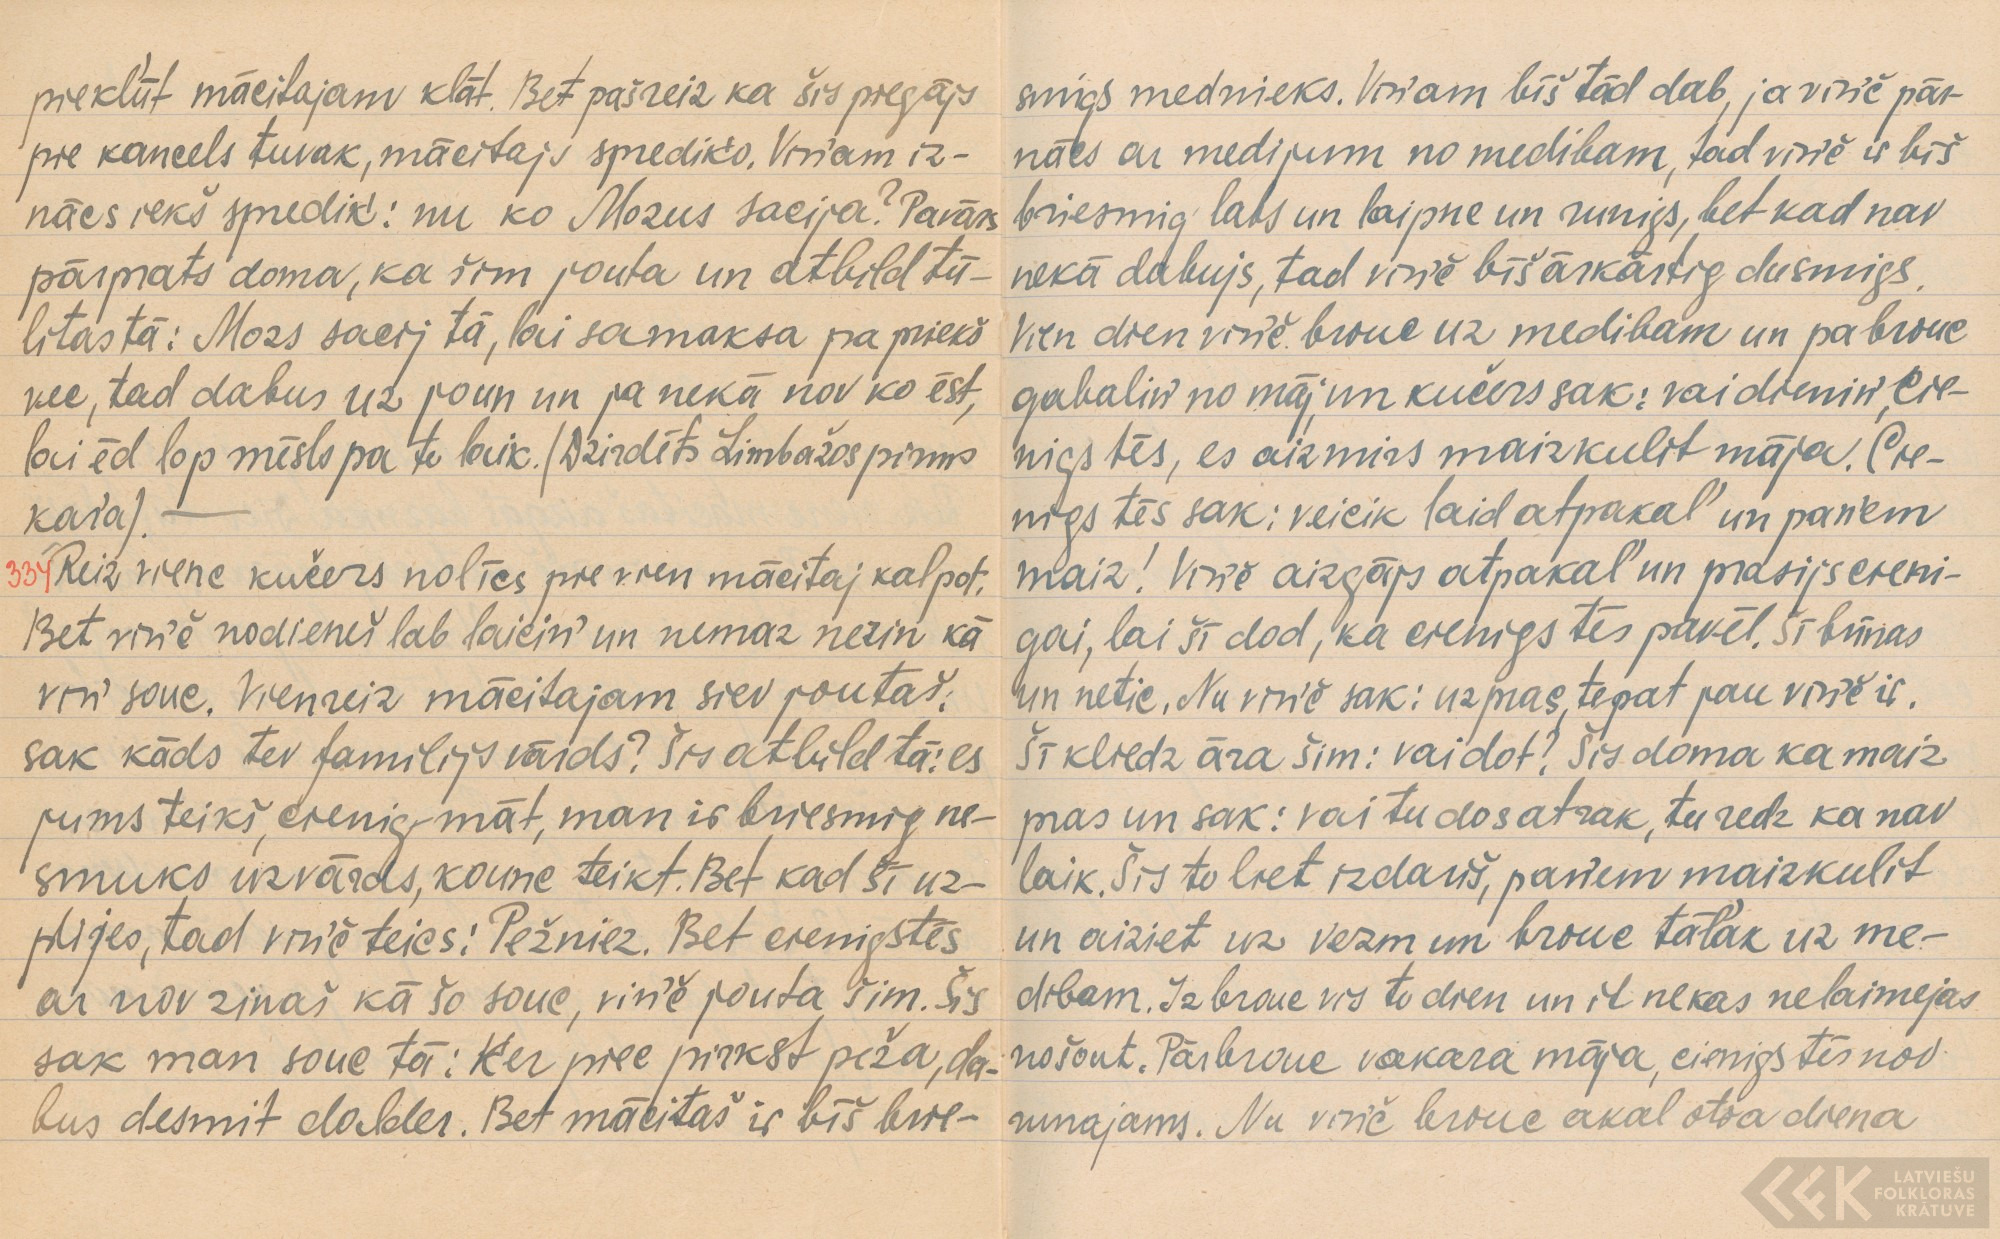 pieklūt mācitajam klāt. Bet pašreiz ka šis piegājs
pie kancels tuvak, mācitajs spredikó. Viņam iz-
nācs iekš spredik': nu ko Mozus sacija? Pavārs
pārprats doma, ka šim jouta un atbild tū-
litas tā: Mozs sacij tā, lai samaksa pa priekš
vec, tad dabus uz joun un ja nekā nov ko ēst,
lai ēd lop mēsls pa to laik. (Dzirdēts Limbažos pirms
kaŗa). —
334 Reiz vienc kučers nolīcs pie vien mācitaj kalpot.
Bet viņč nodieneš lab laiciņ un nemaz nezin kā
viņ souc. Vienreiz mācitajam siev joutaš:
sak kāds tev familijs vārds? Šis atbild tā: es
jums teikš, cienig māt, man ir briesmig ne-
smuks uzvārds, kounc teikt. Bet kad šī uz-
plijes, tad viņč teics: Pežniez. Bet cienigs tēs
ar nov zinaš kā šo souc, viņč jouta šim. Šis
sak man souc tā: Ķer piec pirkst peža, da-
bus desmit dalder. Bet mācitaš ir bīš brie-
smigs mednieks. Viņam bīš tād dab, ja viņč pār-
nācs ar medijum no medibam, tad viņč ir bīš
briesmig labs un laipnc un runigs, bet kad nav
nekā dabujs, tad viņč bīš ārkārtig dusmigs.
Vien dien viņč brouc uz medibam un pabrouc
gabaliņ no māj un kučers sak: vai dieniņ, cie-
nigs tēs, es aizmirs maizkulit māja. Cie-
nigs tēs sak: veicik laid atpakaļ un paņem
maiz! Viņč aizgājs atpakaļ un prasijs cieni-
gai, lai šī dod, ka cienigs tēs pavēl. Šī brīnas
un netic. Nu viņč sak: uzpras, tepat jau viņč ir.
Šī kliedz āra šim: vai dot? Šis doma ka maiz
pras un sak: vai tu dos atrak, tu redz ka nav
laik. Šis to liet izdariš, paņem maizkulit
un aiziet uz vezm un brouc tāļak uz me-
dibam. Izbrouc vis to dien un it nekas nelaimejas
nošout. Pārbrouc vakara māja, cienigs tēs nov
runajams. Nu viņč brouc akal otra diena
LATVIEŠU
FOLKLORAS
KRĀTUVE